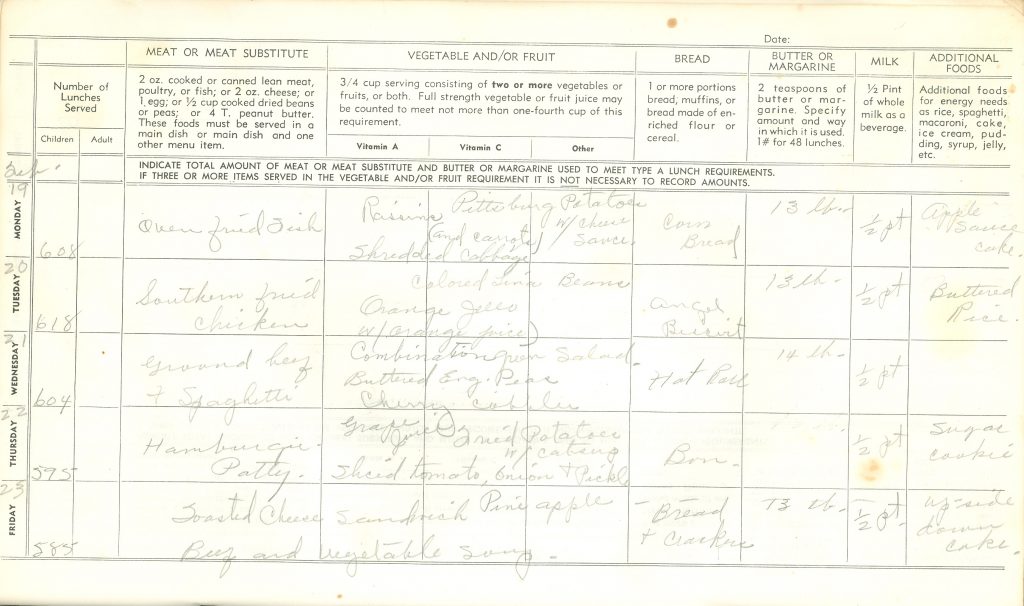 Date:
MEAT OR MEAT SUBSTITUTE
VEGETABLE AND/OR FRUIT
BREAD
BUTTER OR MARGARINE
MILK
ADDITIONAL FOODS
Number of
Lunches
Served
Children
Adult
2 oz. cooked or canned lean meat,
poultry, or fish; or 2 oz. cheese; or
1 egg; or ½ cup cooked dried beans
or peas; or 4 T. peanut butter.
These foods must be served in a
main dish or main dish and one
other menu item.
3/4 cup serving consisting of two or more vegetables or
fruits, or both. Full strength vegetable or fruit juice may
be counted to meet not more than one-fourth cup of this
requirement.
Vitamin A
Vitamin C
Other
1 or more portions
bread; muffins, or
bread made of en-
riched flour or
cereal.
2 teaspoons of
butter or mar-
garine. Specify
amount and way
in which it is used.
1# for 48 lunches.
½ Pint
of whole
milk as a
beverage.
Additional foods
for energy needs
as rice, spaghetti,
macaroni, cake,
ice cream, pud-
ding, syrup, jelly,
etc.
INDICATE TOTAL AMOUNT OF MEAT OR MEAT SUBSTITUTE AND BUTTER OR MARGARINE USED TO MEET TYPE A LUNCH REQUIREMENTS.
IF THREE OR MORE ITEMS SERVED IN THE VEGETABLE AND/OR FRUIT REQUIREMENT IT IS NOT NECESSARY TO RECORD AMOUNTS.
19
MONDAY
608
Oven fried Fish
Pittsburg Potatoes
w/ cheese
sauce
Raisin
(and carrots)
Shredded Cabbage
Corn
Bread
13 lb.
½ pt
Apple
Sauce
cake.
20
TUESDAY
618
Southern fried
chicken
Colored Lima Beans
Orange Jello
w/ orange juice)
Angel
Biscuit
13 lb.
½ pt
Buttered
Rice.
21
WEDNESDAY
604
Ground beef
+ Spaghetti
Combination green Salad
Buttered Eng. Peas
Cherry cobbler
Hot Roll
14 lb.
½ pt
22
THURSDAY
595
Hamburger
Patty.
Grape
Juice
Fried Potatoes
w/ catsup
Sliced tomato, onion + Pickle
Bun.
½ pt
Sugar
cookie
23
FRIDAY
585
Toasted Cheese Sandwich
Pineapple
Beef and vegetable Soup.
Bread
+ Crackers
13 lb.
½ pt.
up-side
down
cake.